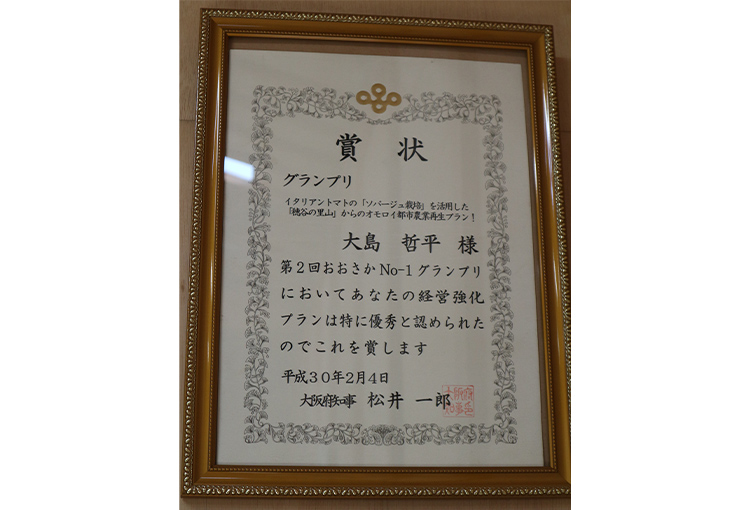 賞状
グランプリ
イタリアントマトの「ソバージュ栽培」を活用した
「穂谷の里山」からのオモロイ都市農業再生プラン！
大島 哲平 様
第２回おおさかNo-1グランプリ
においてあなたの経営強化
プランは特に優秀と認められた
のでこれを賞します
平成３０年２月４日
大阪府知事 松井 一郎